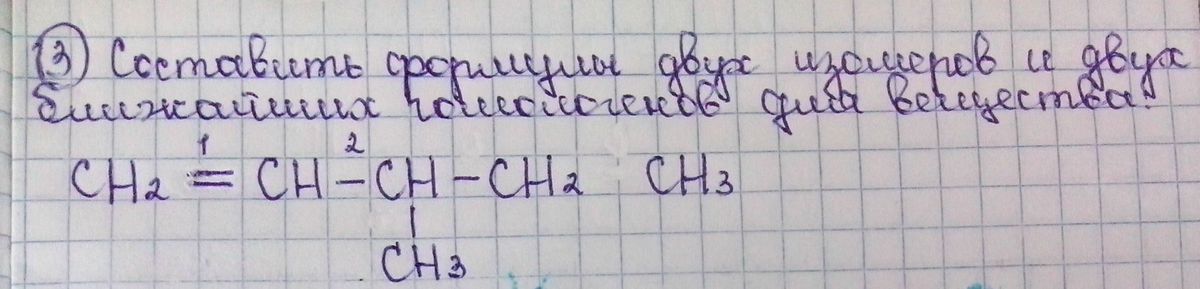 3) Составить формулы двух изомеров и двух
ближайших гомологов для вещества:
1 2
CH2 = CH – CH – CH2 CH3
|
CH3